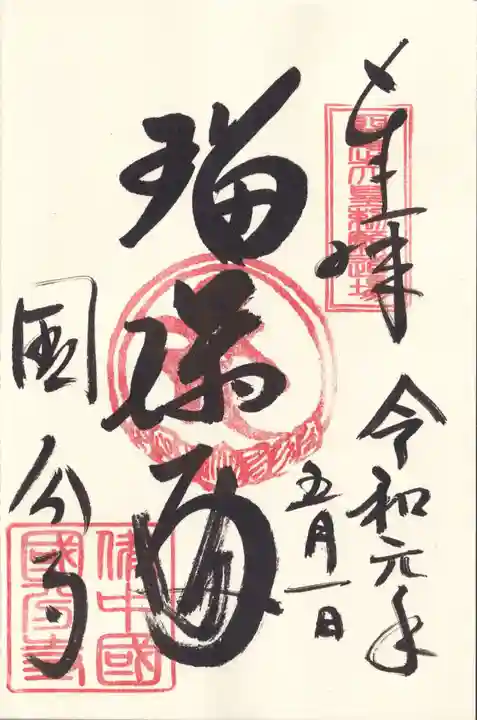 奉拝
令和元年
五月一日
瑠璃殿
国分寺
備中國
國分寺